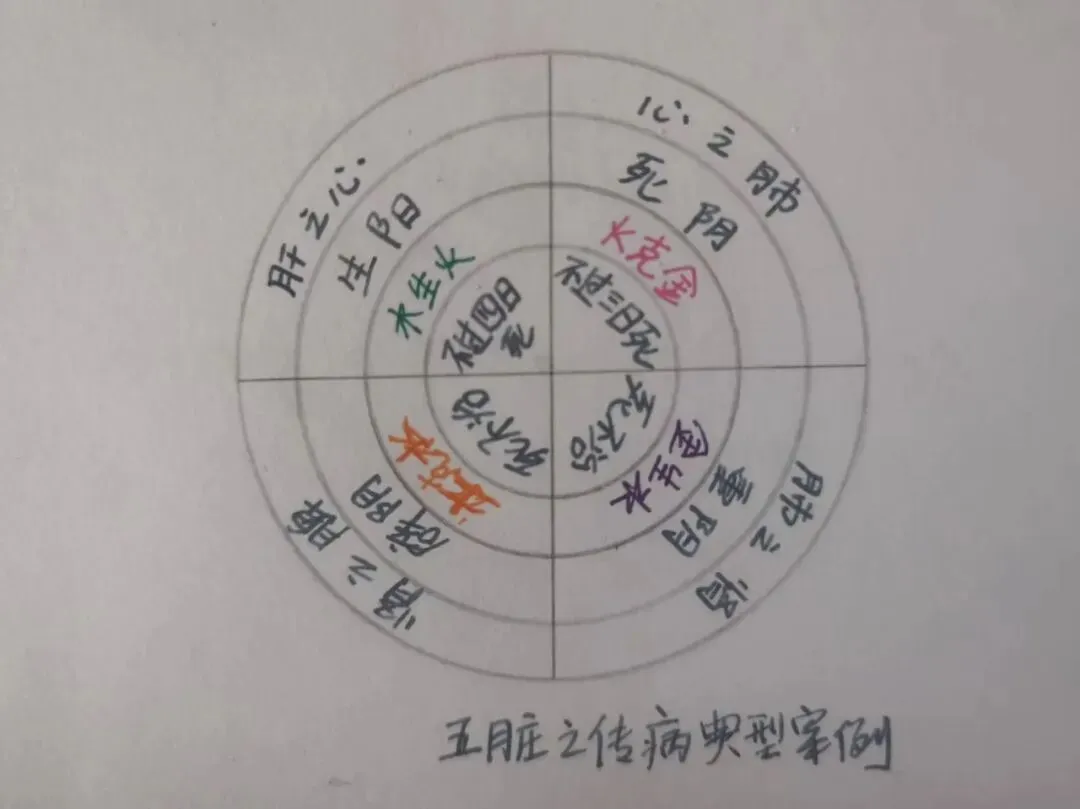 肝之心
生阳
木生火
不过四日
死
心之肺
死阴
火克金
不过三日死
肺之肾
重阴
金生水
死不治
肾之脾
辟阴
土克水
死不治
五脏之传病典型案例